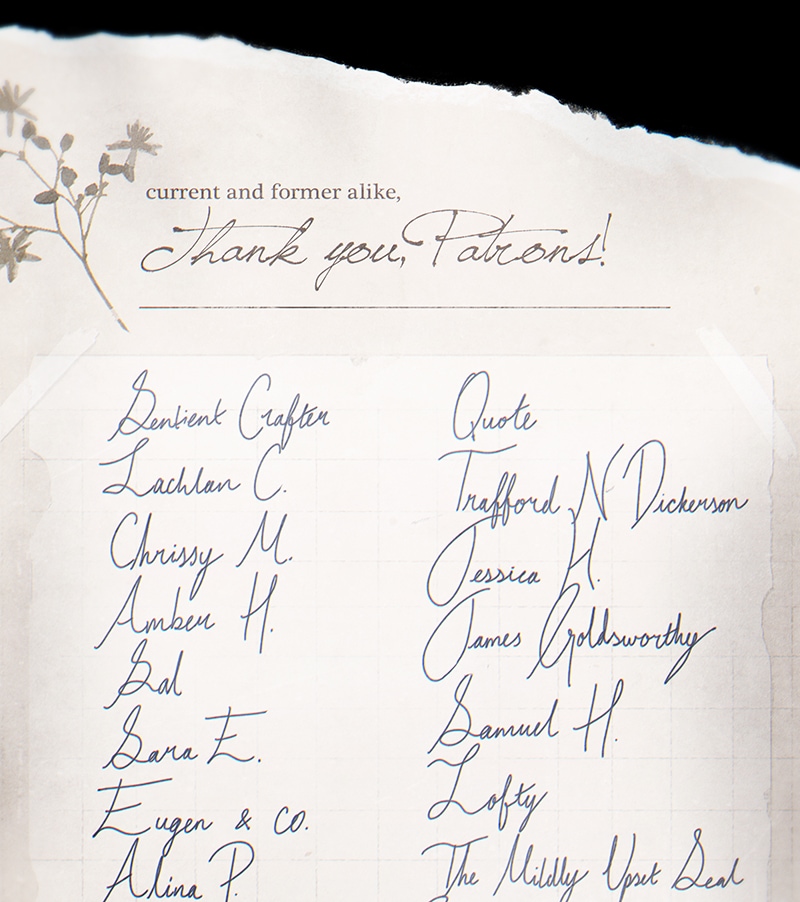 current and former alike,
Thank you, Patrons!
Sentient Crafter
Lachlan C.
Chrissy M.
Amber H.
Sal
Sara E.
Eugen & co.
Alina P.
Quote
Trafford N Dickerson
Jessica H.
James Goldsworthy
Samuel H.
Lofty
The Mildly Upset Seal